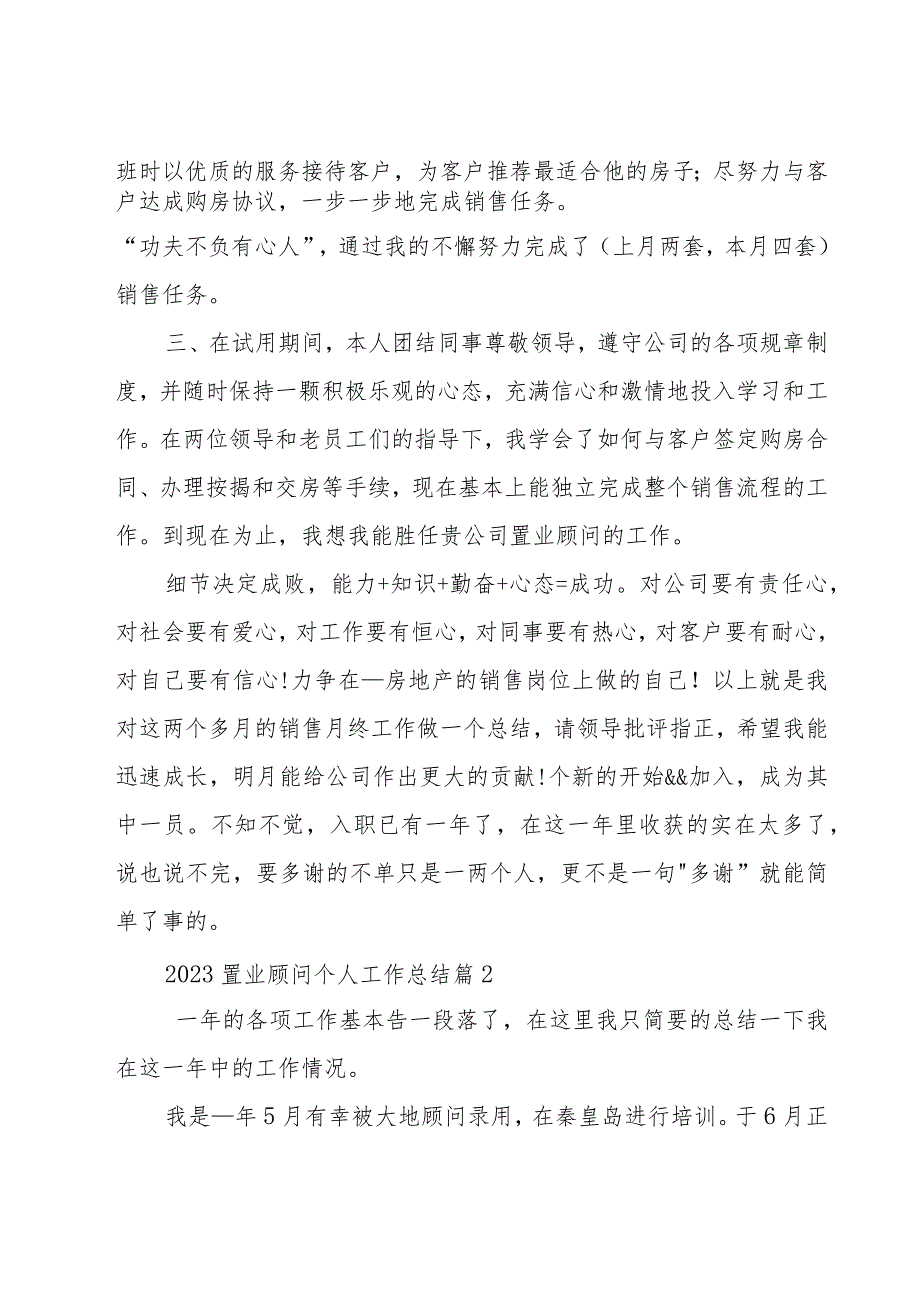 班时以优质的服务接待客户，为客户推荐最适合他的房子；尽努力与客
户达成购房协议，一步一步地完成销售任务。
“功夫不负有心人”，通过我的不懈努力完成了（上月两套，本月四套）
销售任务。
三、在试用期间，本人团结同事尊敬领导，遵守公司的各项规章制
度，并随时保持一颗积极乐观的心态，充满信心和激情地投入学习和工
作。在两位领导和老员工们的指导下，我学会了如何与客户签定购房合
同、办理按揭和交房等手续，现在基本上能独立完成整个销售流程的工
作。到现在为止，我想我能胜任贵公司置业顾问的工作。
细节决定成败，能力+知识+勤奋+心态=成功。对公司要有责任心，
对社会要有爱心，对工作要有恒心，对同事要有热心，对客户要有耐心，
对自己要有信心！力争在—房地产的销售岗位上做的自己！以上就是我
对这两个多月的销售月终工作做一个总结，请领导批评指正，希望我能
迅速成长，明月能给公司作出更大的贡献！个新的开始&&加入，成为其
中一员。不知不觉，入职已有一年了，在这一年里收获的实在太多了，
说也说不完，要多谢的不单只是一两个人，更不是一句"多谢”就能简
单了事的。
2023 置业顾问个人工作总结篇 2
一年的各项工作基本告一段落了，在这里我只简要的总结一下我
在这一年中的工作情况。
我是—年 5 月有幸被大地顾问录用，在秦皇岛进行培训。于 6 月正